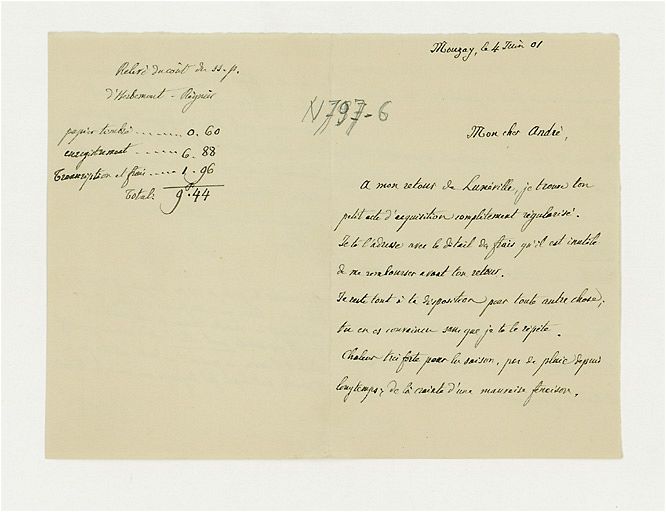 Relevé du coût du ss.p.
d'Herbemont - Régnier
papier timbré ........ 0.60
enregistrement ..... 6.88
Transcription et frais ..... 1.96
Total: 9f.44
N 797-6
Mouzay, le 4 Juin 01
Mon cher André,
A mon retour de Lunéville, je trouve ton
petit acte d'acquisition complètement régularisé.
Je te l'adresse avec le détail des frais qu'il est inutile
de me rembourser avant ton retour.
Je reste tout à ta disposition pour toute autre chose,
tu en es convaincu sans que je te le répète.
Chaleur très forte pour la saison, pas de pluie depuis
longtemps, de là crainte d'une mauvaise fenaison.